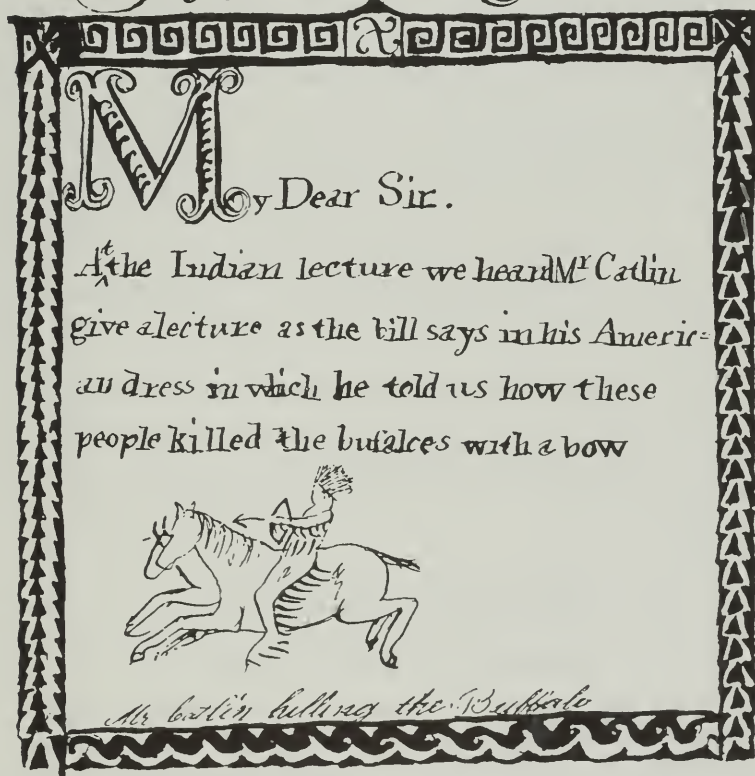 My Dear Sir.
At the Indian lecture we heard Mr Catlin
give a lecture as the bill says in his Americ=
an dress in which he told us how these
people killed the bufaloes with a bow
Mr Catlin killing the Buffalo